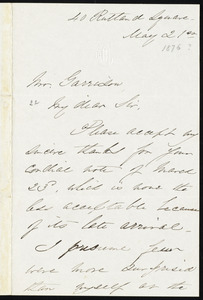 40 Rutland Square
May 21st
1876?
Mr. Garrison
My dear Sir,
Please accept my
sincere thanks for your
cordial note of March
25th, which is none the
less acceptable because
of its late arrival.
I presume few
were more surprised
than myself at the